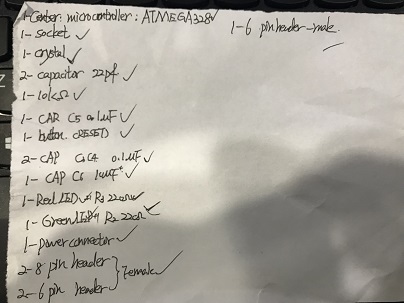 1-Center: microcontroller: ATMEGA328 ✓
1-socket ✓
1-crystal ✓
2-capacitor 22pf ✓
1-10kΩ ✓
1-CAP C5 0.1uF ✓
1-button (RESET) ✓
2-CAP C4 0.1uF ✓
1-CAP C6 ✓
1-Red LED ✓
1-Green LED R2 220Ω ✓
1-power connector ✓
2-8 pin header
2-6 pin header } Female ✓
1-6 pin header-male.